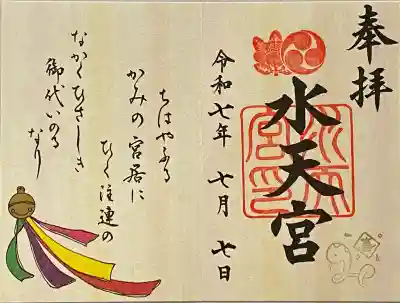 奉拝
水天宮
令和七年 七月 七日
ちはやふる
かみの宮居に
ひく注連の
なかくひさしき
御代いのる
なり